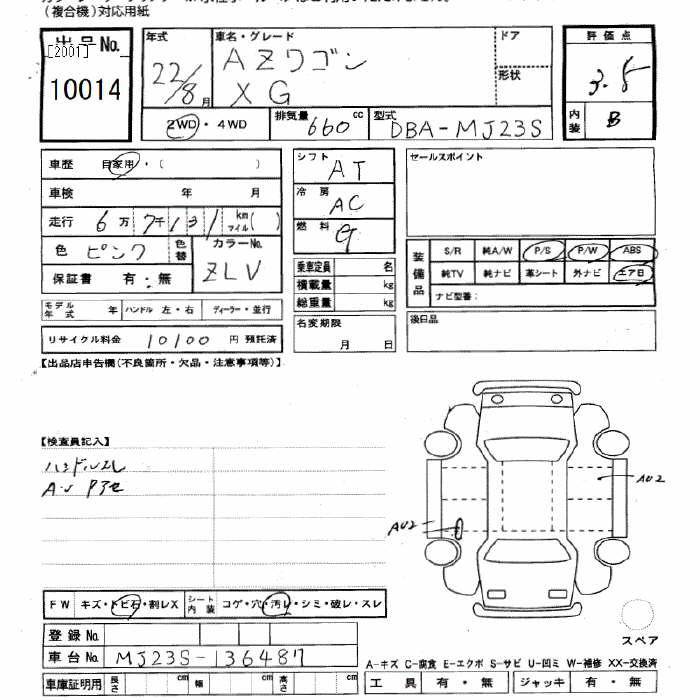 (複合機)対応用紙
出品No. [2001]
10014
年式 22/8月
車名・グレード AZワゴン XG
ドア
形状
評価点 3.5
内装 B
2WD・4WD
排気量 660 cc
型式 DBA-MJ23S
車歴 自家用・( )
車検 年 月
走行 6万7千131 km マイル( )
色 ピンク 色替
カラーNo. ZLV
保証書 有・無
モデル年式 年 ハンドル 左・右 ディーラー・並行
リサイクル料金 10100 円 預託済
シフト AT
冷房 AC
燃料 G
乗車定員 名
積載量 kg
総重量 kg
名変期限 月 日
セールスポイント
装備品 S/R 純A/W P/S P/W ABS
純TV 純ナビ 革シート 外ナビ エアB
ナビ型番:
後日品
【出品店申告欄(不良箇所・欠品・注意事項等)】
【検査員記入】
ハンドルスレ
AU2
AU2
FW キズ・トビ石・割レX
シート内装 コゲ・穴・汚レ・シミ・破レ・スレ
登録No.
車台No. MJ23S-136487
車庫証明用 長さ cm 幅 cm 高さ cm
スペア
A-キズ C-腐食 E-エクボ S-サビ U-凹ミ W-補修 XX-交換済
工具 有・無 ジャッキ 有・無